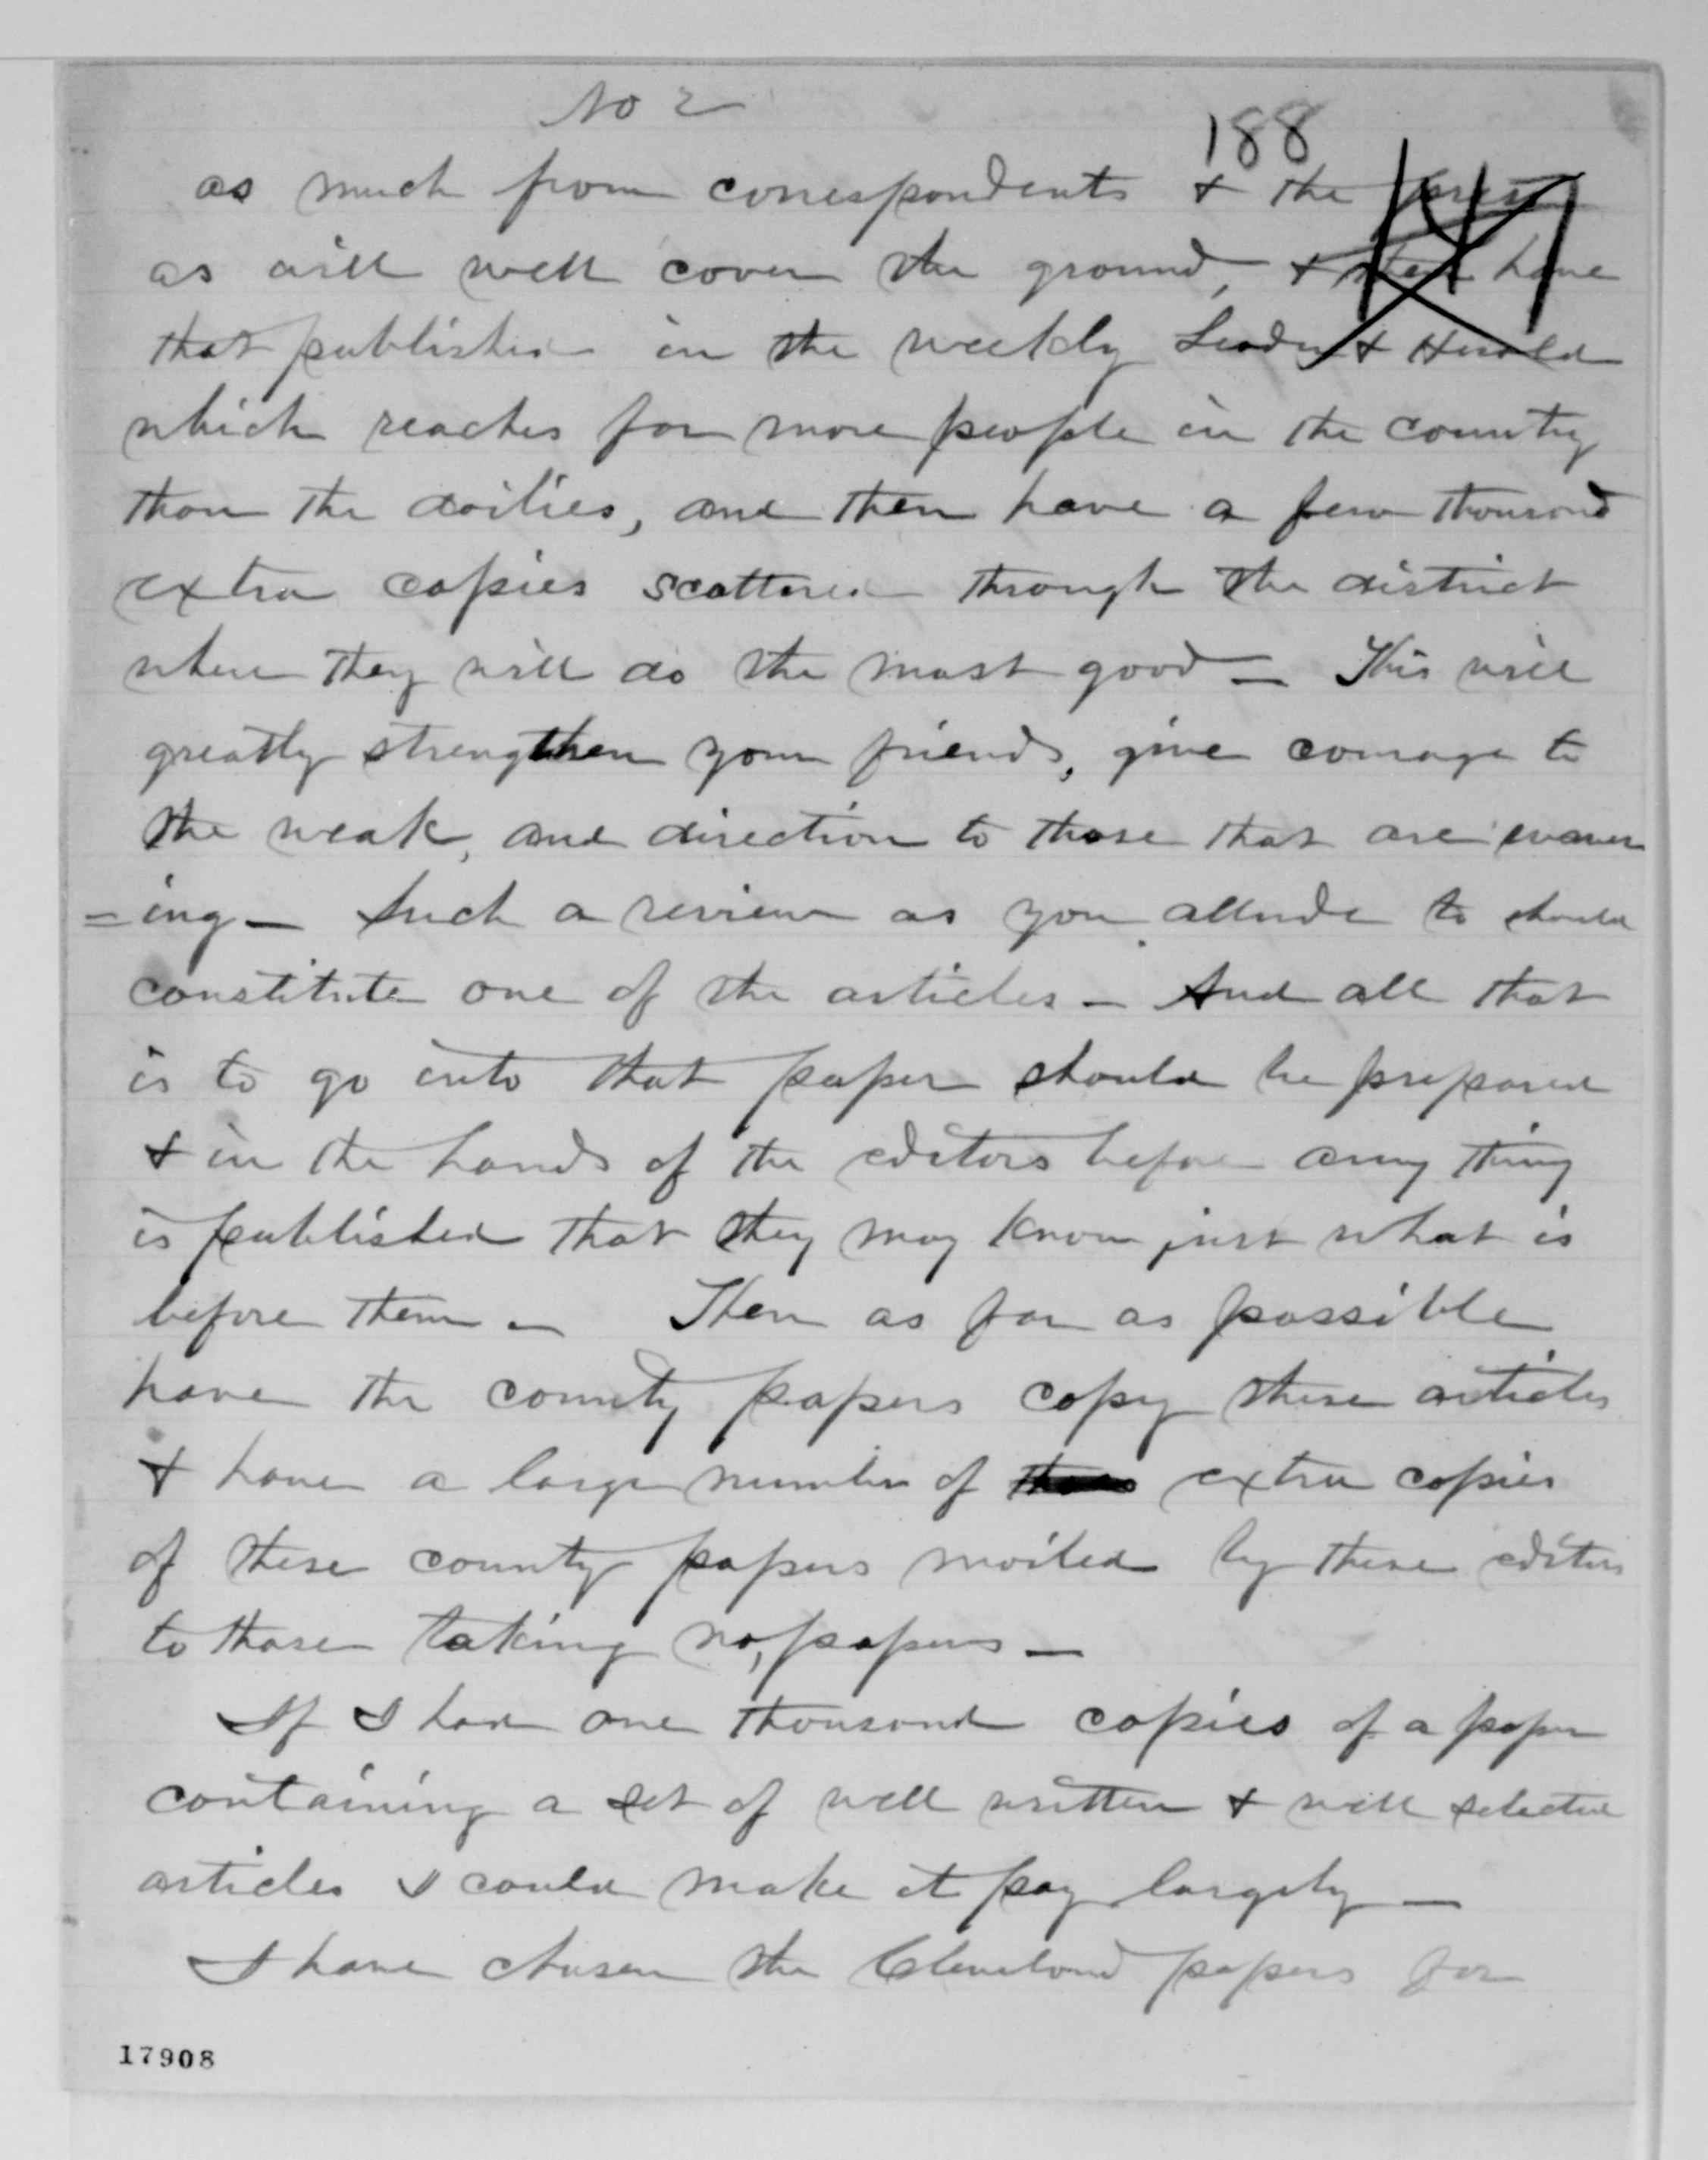 No 2
188
as much from correspondents & the press
as will well cover the ground, & then have
that published in the weekly Leader & Herald
which reaches far more people in the country
than the dailies, and then have a few thousand
extra copies scattered through the district
where they will do the most good – This will
greatly strengthen your friends, give courage to
the weak, and direction to those that are waver
=ing – Such a review as you allude to should
constitute one of the articles – And all that
is to go into that paper should be prepared
& in the hands of the editors before any thing
is published that they may know just what is
before them – Then as far as possible
have the county papers copy these articles
& have a large number of extra copies
of these county papers mailed by these editors
to those taking no, papers –
If I had one thousand copies of a paper
containing a set of well written & well selected
articles I could make it pay largely –
I have chosen the Cleveland papers for
17908